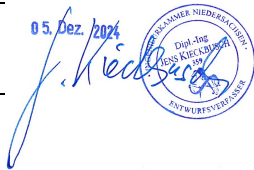 05. Dez. 2024
J. Kieckbusch
INGENIEURKAMMER NIEDERSACHSEN
Dipl.-Ing
JENS KIECKBUSCH
359
ENTWURFSVERFASSER